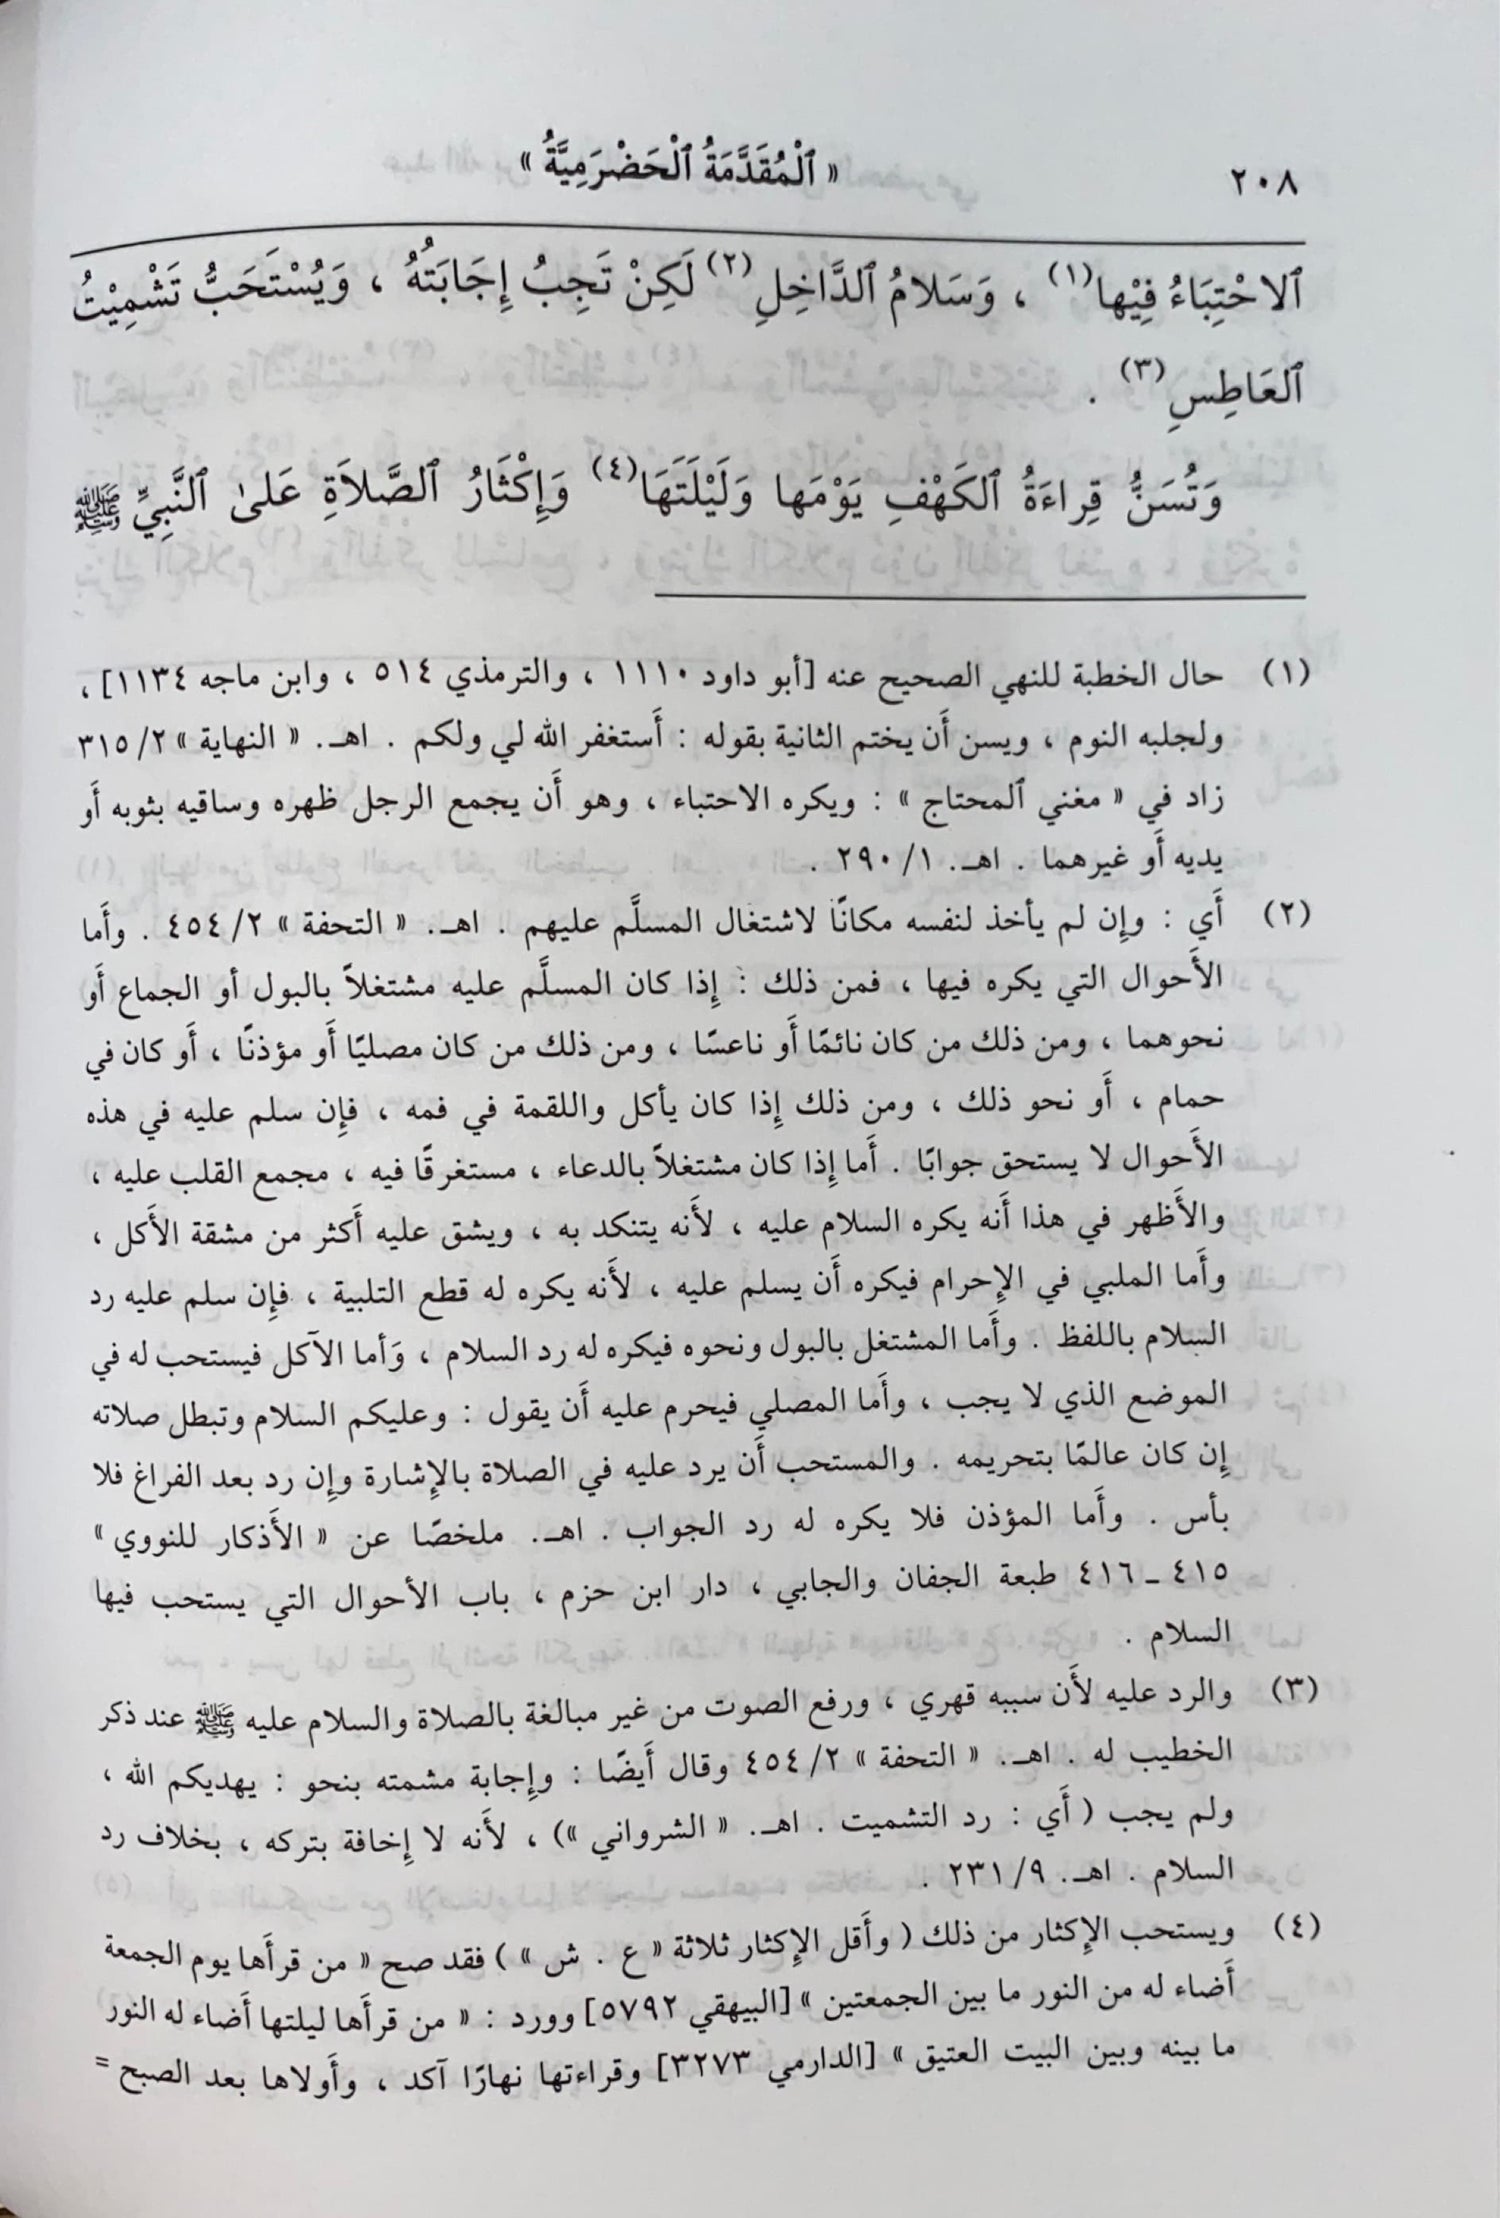 ٢٠٨
« ٱلْمُقَدِّمَةُ ٱلْحَضْرَمِيَّةُ »
ٱلاحْتِبَاءُ فِيْها(١) ، وَسَلامُ ٱلدَّاخِلِ(٢) لَكِنْ تَجِبُ إِجَابَتُهُ ، وَيُسْتَحَبُّ تَشْمِيْتُ
ٱلعَاطِسِ(٣) .
وَتُسَنُّ قِراءَةُ ٱلكَهْفِ يَوْمَها وَلَيْلَتَهَا(٤) وَإِكْثَارُ ٱلصَّلاَةِ عَلىٰ ٱلنَّبِيِّ ﷺ
(١) حال الخطبة للنهي الصحيح عنه [أبو داود ١١١٠ ، والترمذي ٥١٤ ، وابن ماجه ١١٣٤] ،
ولجلبه النوم ، ويسن أَن يختم الثانية بقوله : أَستغفر الله لي ولكم . اهـ. « النهاية » ٣١٥/٢
زاد في « مغني ٱلمحتاج » : ويكره الاحتباء ، وهو أَن يجمع الرجل ظهره وساقيه بثوبه أَو
يديه أَو غيرهما . اهـ. ٢٩٠/١ .
(٢) أَي : وإِن لم يأخذ لنفسه مكانًا لاشتغال المسلَّم عليهم . اهـ. « التحفة » ٤٥٤/٢ . وأَما
الأَحوال التي يكره فيها ، فمن ذلك : إِذا كان المسلَّم عليه مشتغلاً بالبول أو الجماع أَو
نحوهما ، ومن ذلك من كان نائمًا أَو ناعسًا ، ومن ذلك من كان مصليًا أَو مؤذنًا ، أَو كان في
حمام ، أَو نحو ذلك ، ومن ذلك إِذا كان يأكل واللقمة في فمه ، فإِن سلم عليه في هذه
الأَحوال لا يستحق جوابًا . أَما إِذا كان مشتغلاً بالدعاء ، مستغرقًا فيه ، مجمع القلب عليه ،
والأَظهر في هذا أَنه يكره السلام عليه ، لأَنه يتنكد به ، ويشق عليه أَكثر من مشقة الأَكل ،
وأَما الملبي في الإِحرام فيكره أَن يسلم عليه ، لأَنه يكره له قطع التلبية ، فإِن سلم عليه رد
السلام باللفظ . وأَما المشتغل بالبول ونحوه فيكره له رد السلام ، وَأما الآكل فيستحب له في
الموضع الذي لا يجب ، وأَما المصلي فيحرم عليه أَن يقول : وعليكم السلام وتبطل صلاته
إِن كان عالمًا بتحريمه . والمستحب أَن يرد عليه في الصلاة بالإِشارة وإِن رد بعد الفراغ فلا
بأس . وأَما المؤذن فلا يكره له رد الجواب . اهـ. ملخصًا عن « الأَذكار للنووي »
٤١٥ ـ ٤١٦ طبعة الجفان والجابي ، دار ابن حزم ، باب الأحوال التي يستحب فيها
السلام .
(٣) والرد عليه لأَن سببه قهري ، ورفع الصوت من غير مبالغة بالصلاة والسلام عليه ﷺ عند ذكر
الخطيب له . اهـ. « التحفة » ٤٥٤/٢ وقال أَيضًا : وإِجابة مشمته بنحو : يهديكم الله ،
ولم يجب ( أَي : رد التشميت . اهـ. « الشرواني ») ، لأَنه لا إِخافة بتركه ، بخلاف رد
السلام . اهـ. ٢٣١/٩ .
(٤) ويستحب الإِكثار من ذلك ( وأَقل الإِكثار ثلاثة « ع . ش » ) فقد صح « من قرأَها يوم الجمعة
أَضاء له من النور ما بين الجمعتين » [البيهقي ٥٧٩٢] وورد : « من قرأَها ليلتها أَضاء له النور
ما بينه وبين البيت العتيق » [الدارمي ٣٢٧٣] وقراءتها نهارًا آكد ، وأَولاها بعد الصبح =